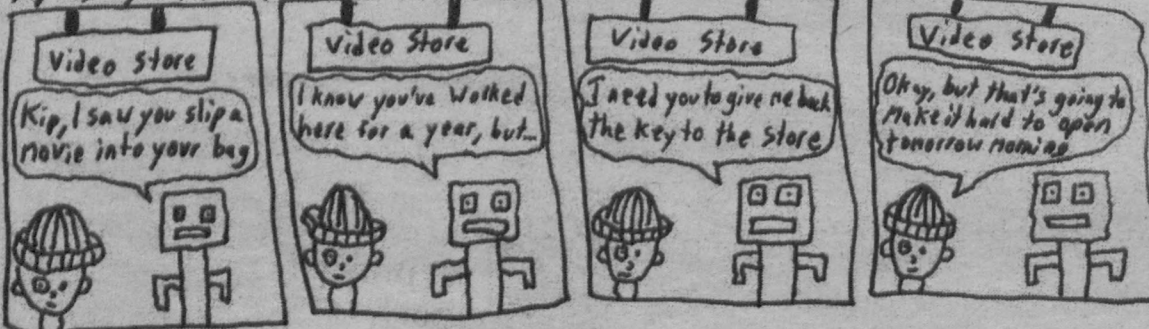 Video Store
Kip, I saw you slip a
movie into your bag
Video Store
I know you've worked
here for a year, but...
Video Store
I need you to give me back
the key to the store
Video Store
Okay, but that's going to
make it hard to open
tomorrow morning